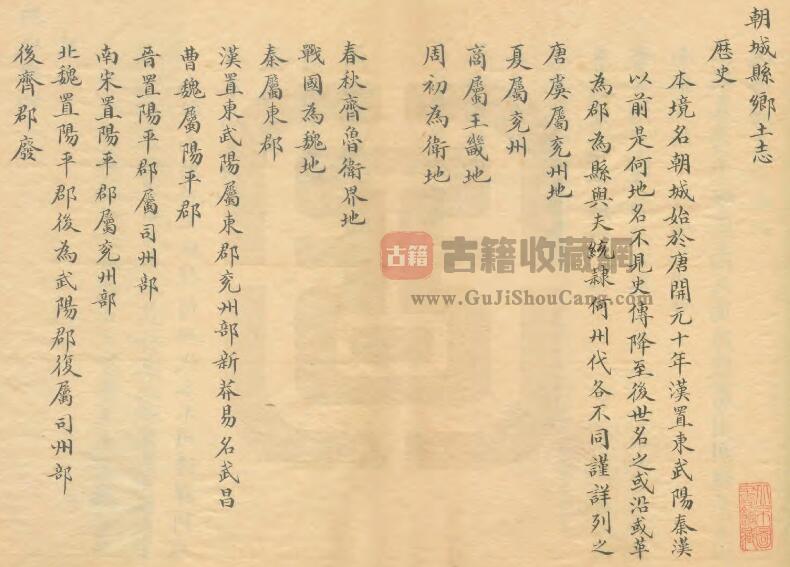 朝城縣鄉土志
歷史
本境名朝城始於唐開元十年漢置東武陽秦漢
以前是何地名不見史傳降至後世名之或沿或革
為郡為縣與夫統隸何州代各不同謹詳列之
唐虞屬兗州地
夏屬兗州
商屬王畿地
周初為衛地
春秋齊魯衛界地
戰國為魏地
秦屬東郡
漢置東武陽屬東郡兗州部新莽易名武昌
曹魏屬陽平郡
晉置陽平郡屬司州部
南宋置陽平郡屬兗州部
北魏置陽平郡後為武陽郡復屬司州部
後齊郡廢
古籍
古籍收藏網
www.GuJiShouCang.com